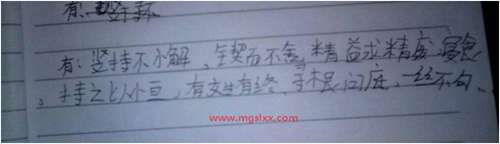 有:
有:坚持不小解、锲而不舍、精益求精废寝食
、持之以小亘,有始有终、寻根问底、一丝不勾、
www.mgslxx.com